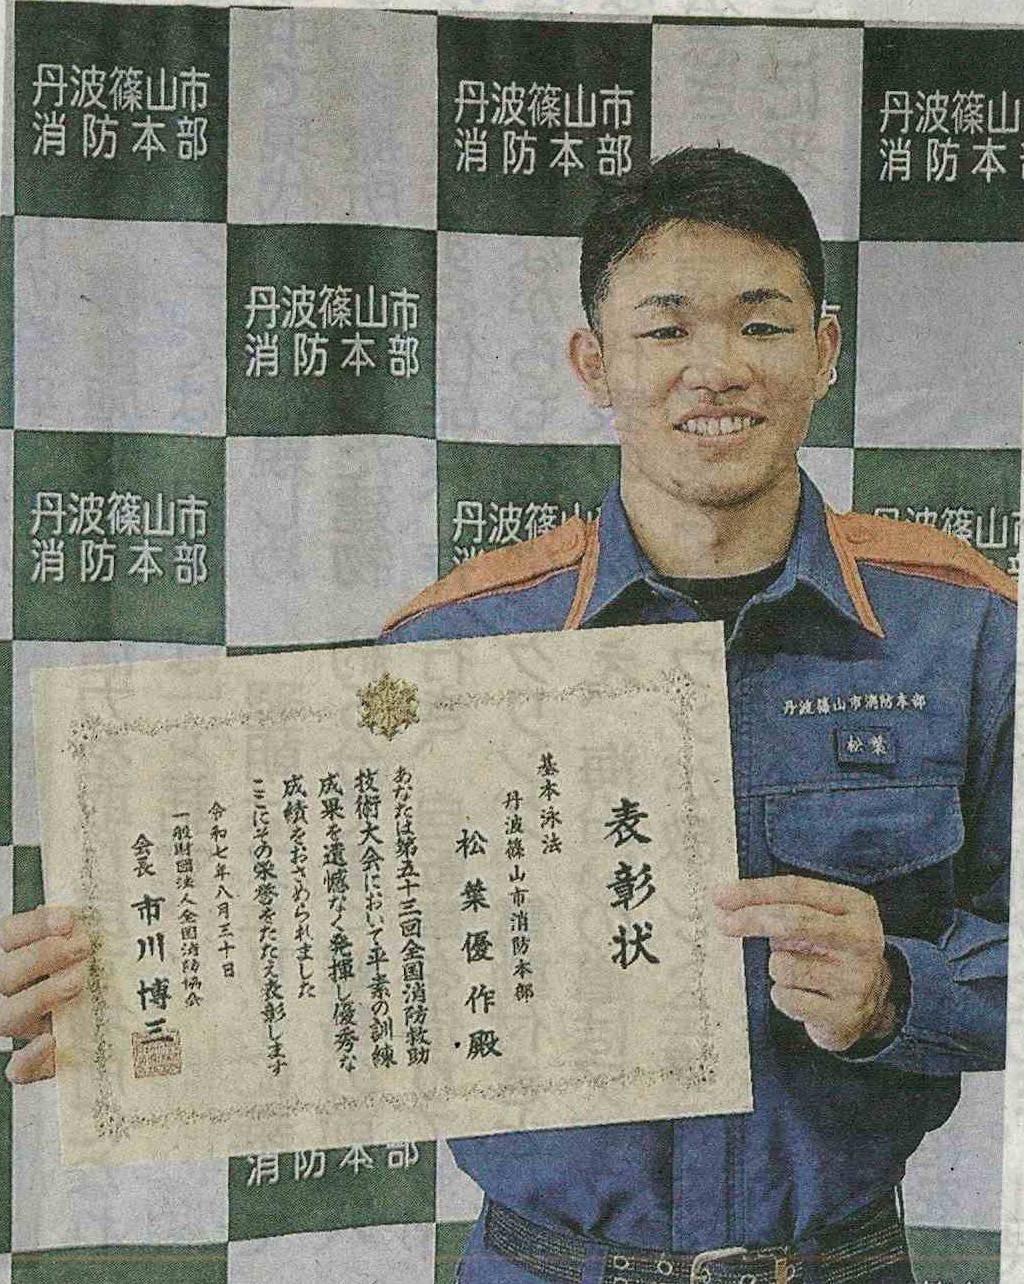 丹波篠山市
消防本部
丹波篠山市
消防本部
丹波篠山
消防本
丹波篠山市
消防本部
丹波篠山市
消防本部
丹波篠山
丹波篠山
丹波篠山市消防本部
松葉
表彰状
基本泳法
丹波篠山市消防本部
松葉優作殿
あなたは第五十三回全国消防救助
技術大会において平素の訓練
成果を遺憾なく発揮し優秀な
成績をおさめられました
ここにその栄誉をたたえ表彰します
令和七年八月三十日
一般財団法人全国消防協会
会長 市川博三
消防本部